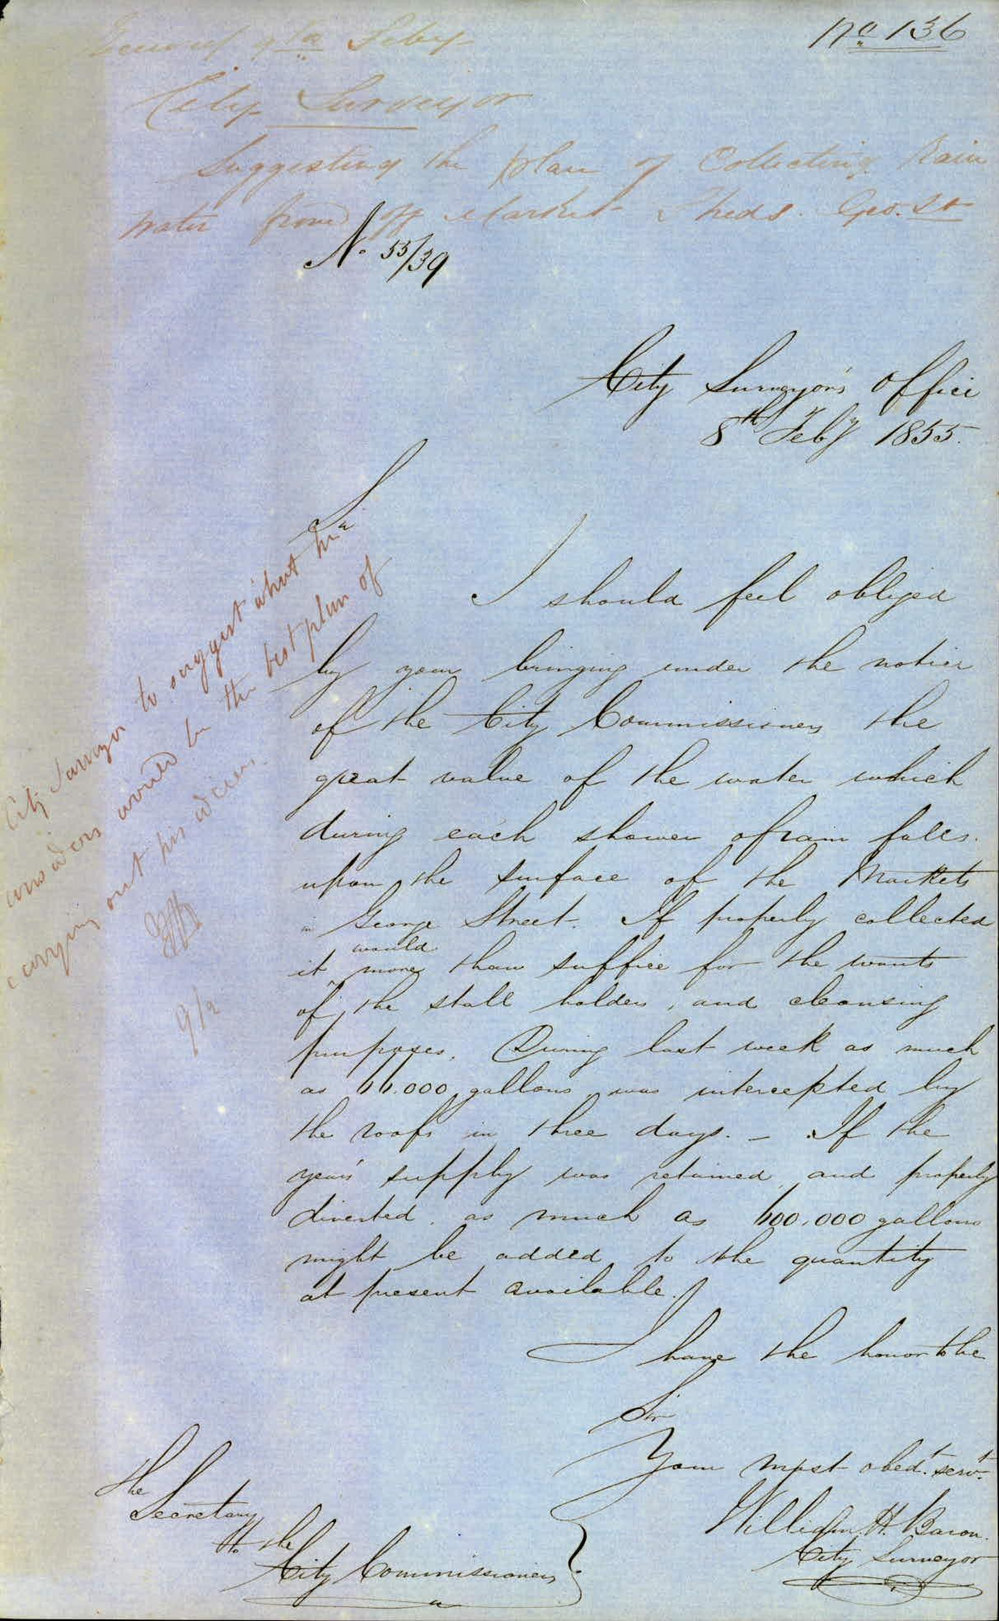 No 136
9th Feby
City Surveyor
Suggesting the plan of Collecting Rain
water from off Market Sheds. Geo. St
No. 55/39
City Surveyor's Office
8th Feby 1855.
Sir
I should feel obliged
by your bringing under the notice
of the City Commissioners the
great value of the water which
during each shower of rain falls
upon the surface of the Markets
in George Street. If properly collected
it would more than suffice for the wants
of the stall holders, and cleansing
purposes. During last week as much
as 11.000 gallons was intercepted by
the roofs in three days. – If the
year's supply was retained and properly
diverted as much as 600.000 gallons
might be added to the quantity
at present available.
I have the honor to be
Sir
Your most obedt. servt.
William H. Baron.
City Surveyor
The
Secretary
to the
City Commissioners
City Surveyor to suggest what he
considers would be the best plan of
carrying out his ideas.
9/2